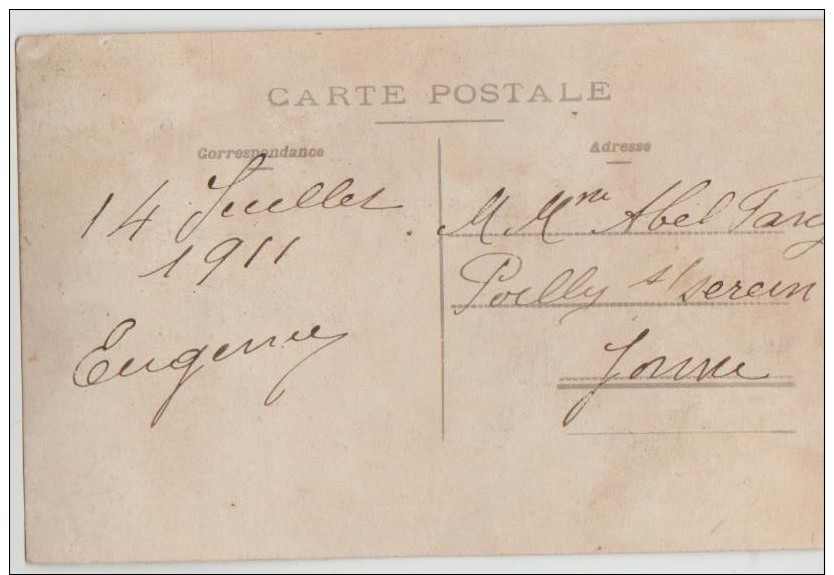 CARTE POSTALE
Correspondance
14 Juillet
1911
Eugenie
Adresse
M Mme Abel
Poilly s/ serein
Yonne